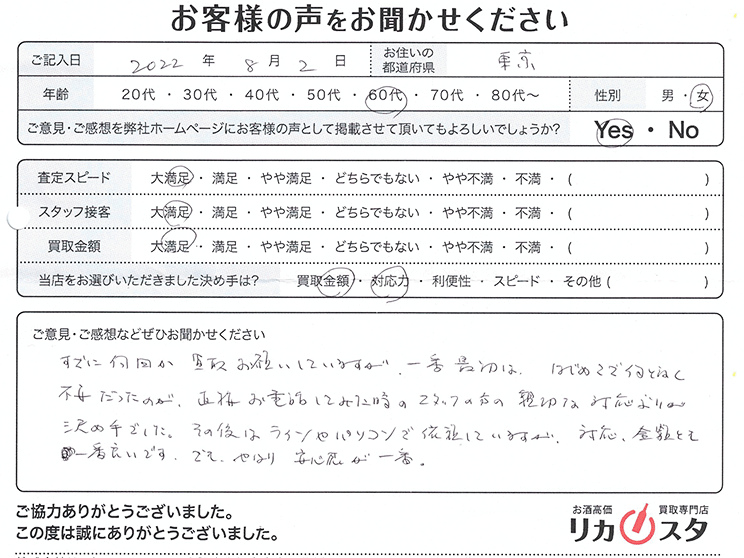 お客様の声をお聞かせください
ご記入日 2022 年 8 月 2 日 お住いの都道府県 東京
年齢 20代 ・ 30代 ・ 40代 ・ 50代 ・ 60代 ・ 70代 ・ 80代〜 性別 男 ・ 女
ご意見・ご感想を弊社ホームページにお客様の声として掲載させて頂いてもよろしいでしょうか? Yes ・ No
査定スピード 大満足 ・ 満足 ・ やや満足 ・ どちらでもない ・ やや不満 ・ 不満 ・ ( )
スタッフ接客 大満足 ・ 満足 ・ やや満足 ・ どちらでもない ・ やや不満 ・ 不満 ・ ( )
買取金額 大満足 ・ 満足 ・ やや満足 ・ どちらでもない ・ やや不満 ・ 不満 ・ ( )
当店をお選びいただきました決め手は? 買取金額 ・ 対応力 ・ 利便性 ・ スピード ・ その他 ( )
ご意見・ご感想などぜひお聞かせください
すでに何回か 買取お願いしていますが、一番最初は、はじめてで何となく
不安だったのが、直接お電話してみた時のスタッフの方の親切な対応ぶりが
決め手でした。その後はラインやパソコンで依頼していますが、対応、金額とも
一番良いです。でも、やはり 安心感が一番。
ご協力ありがとうございました。
この度は誠にありがとうございました。
お酒高価 買取専門店
リカスタ